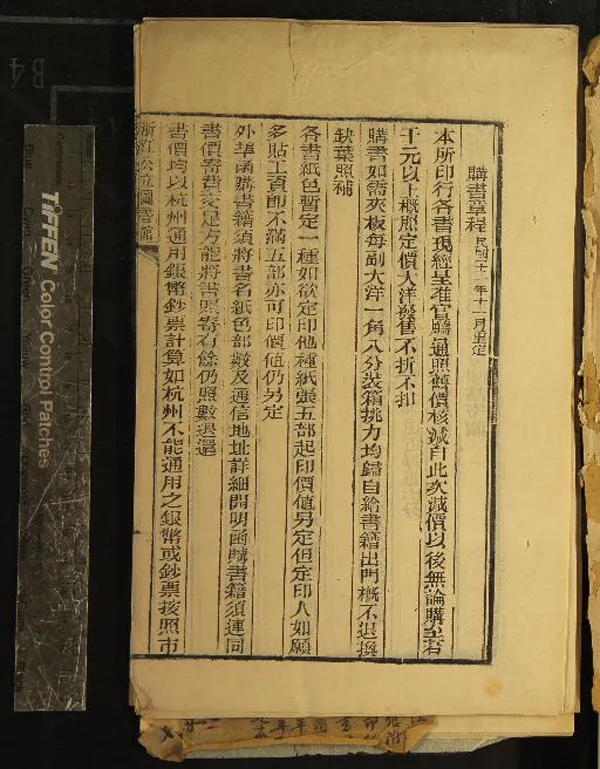 購書章程民國十一年十一月呈定
本所印行各書現經呈准官廳通照舊價核減自此次減價以後無論購至若
干元以上概照定價大洋發售不折不扣
購書如需夾板每副大洋一角八分裝箱挑力均歸自給書籍出門概不退換
缺葉照補
各書紙色暫定一種如欲定印他種紙張五部起印價值另定但定印人如願
多貼工資即不滿五部亦可印價值仍另定
外埠函購書籍須將書名紙色部數及通信地址詳細開明函購書籍須連同
書價寄費交足方能將書照寄有餘仍照數退還
書價均以杭州通用銀幣鈔票計算如杭州不能通用之銀幣或鈔票按照市
浙江公立圖書館
TIFFEN Color Control Patches
B4